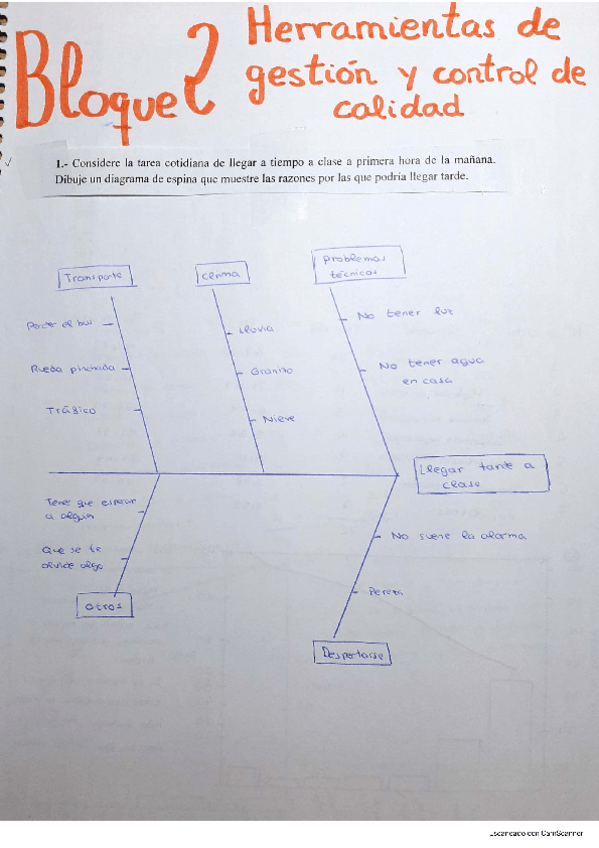 Bloque 2
Herramientas de
gestión y control de
calidad
1.- Considere la tarea cotidiana de llegar a tiempo a clase a primera hora de la mañana.
Dibuje un diagrama de espina que muestre las razones por las que podría llegar tarde.
Transporte
Clima
Problemas
técnicos
Perder el bus
Rueda pinchada
Tráfico
Lluvia
Granizo
Nieve
No tener luz
No tener agua
en casa
Llegar tarde a
clase
Tener que esperar
a alguien
Que se te
olvide algo
Otros
No suene la alarma
Pereza
Despertarse
Escaneado con CamScanner